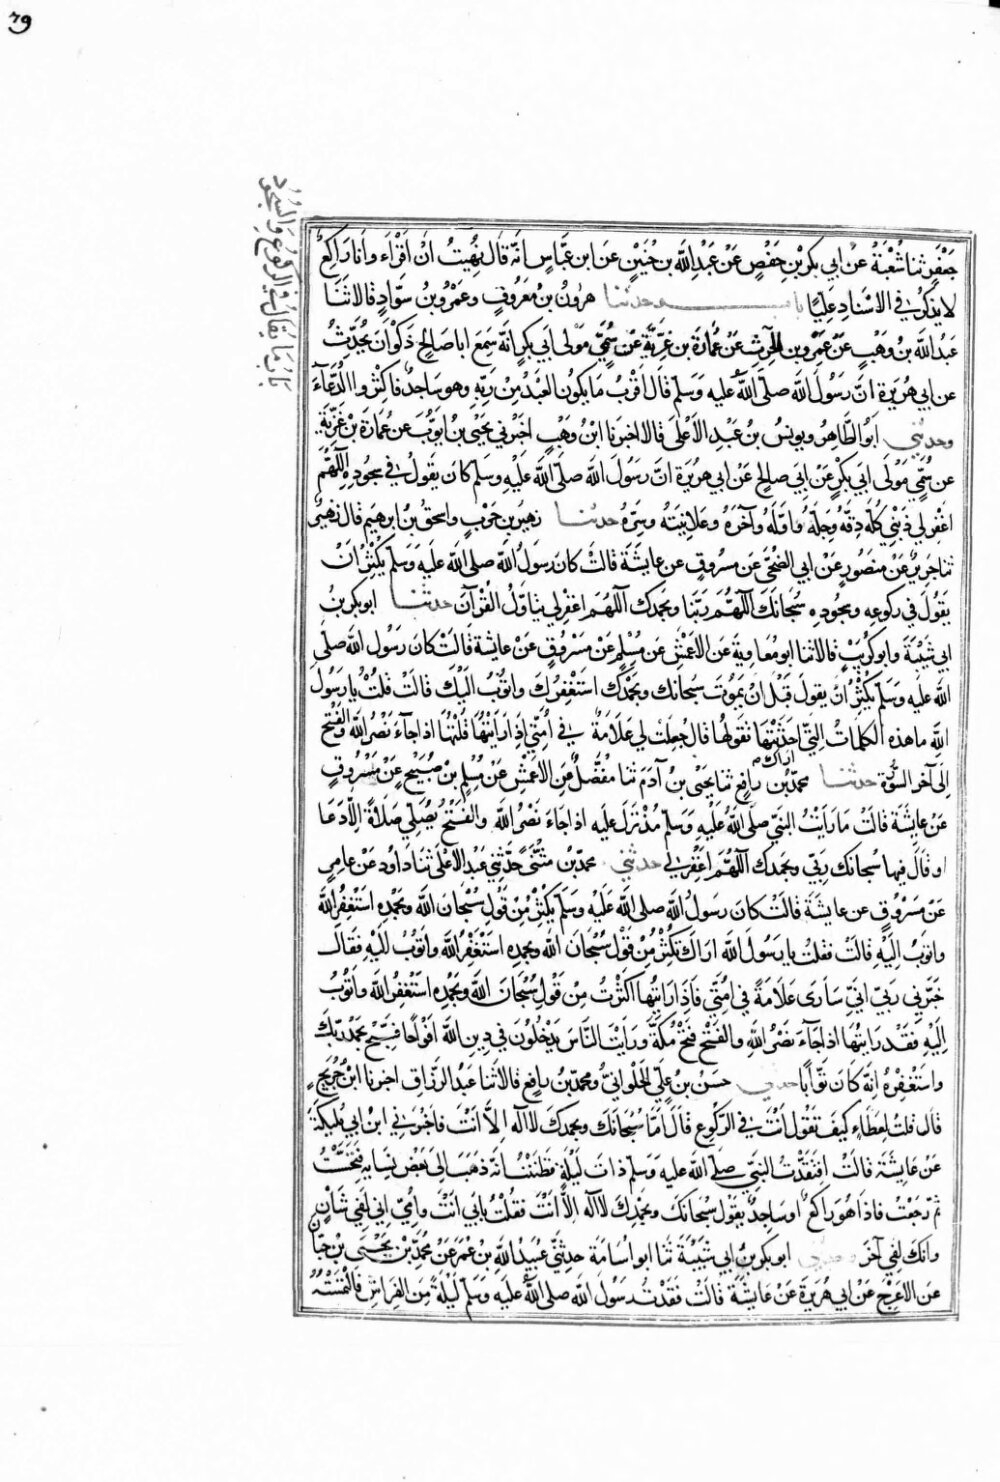 ٧٩
باب ما يقال في الركوع والسجود
جَعْفَرٍ ثنا شُعْبَةُ عن ابي بكر بْنِ حَفْصٍ عَنْ عَبْدِ اللَّه بن حُنَيْنٍ عَنَ ابن عَبَّاسٍ انَّه قَالَ نُهِيتُ اَنْ اَقْرَاءَ وانَا رَاكِعٌ
لا يذكُرُ في الاسْنادِ عَلِيًّا باب حدثنا هرونُ بنُ مَعْرُوفٍ وعَمْرُو بنُ سوّادٍ قالا ثنَا
عَبدُ اللَّه بنُ وهْبٍ عَنْ عَمْرِو بنِ الحرِثِ عَنْ عُمَارَةَ بنِ غَزِيَّةَ عَنْ سُمَيٍّ مَوْلى ابي بكرٍ انَّه سَمِعَ ابا صَالِحٍ ذَكْوَانَ يُحَدِّثُ
عن ابي هُرَيرَة انَّ رَسُولَ اللَّه صلّى اللَّه عليه وَسَلّم قَالَ اَقْرَبُ مَا يكونُ العَبْدُ مِنْ رَبِّهِ وهو سَاجِدٌ فاكثِرُوا الدُّعَآءَ
وحدثني ابو الطَّاهِرِ ويونسُ بن عَبْدِ الاَعْلى قالا اخبرنا ابْنُ وَهْبٍ اخْبَرَني يَحْيى بنُ ايّوُبَ عَن عُمَارَة بن غَزِيَّةَ
عن سُمَيٍّ مَوْلَى ابي بَكْرٍ عَنْ ابي صالحٍ عَنْ ابي هريرَة انَّ رسُولَ اللَّه صَلَّى اللَّه عَلَيْهِ وسَلّم كانَ يَقولُ في سجُودِه اللَّهُمَّ
اغْفِر لي ذَنْبي كُلَّه دِقَّهُ وجِلَّهُ واَوَّلَهُ وآخرَهُ وعَلانِيَتَه وسِرَّهُ حدثنا زهيرُ بن حَرْبٍ واسحقُ بنُ ابرهيم قال زهيرٌ
ثنا جَرِيرٌ عَنْ منصُورٍ عَنْ ابي الضُّحَى عَنْ مسْرُوقٍ عن عايشَةَ قالتْ كانَ رَسُولُ اللَّه صلى اللَّه عليه وَسَلّم يُكثِرُ انْ
يَقُولَ في ركوعِه وسجُودِه سُبحانَكَ اللَّهُمَّ رَبَّنا وبحمدِك اللَّهُمّ اغفِر لي يتاَوَّلُ القُرْآنَ حدثنا ابو بكر بنُ
ابي شَيْبَةَ وابو كُرَيْبٍ قالا ثنا ابو مُعَاوِيَة عَن الاَعْمَشِ عَنْ مُسْلِمٍ عَنْ مَسْرُوقٍ عَنْ عايشةَ قالتْ كانَ رسُولُ اللَّه صلّى
اللَّه عليْه وسَلّم يُكْثِرُ انْ يقولَ قَبْلَ انْ يَمُوتَ سُبحانَك وبحَمْدِك استَغْفِرُكَ واتوُبُ اليك قالتْ قلتُ يا رسولَ
اللَّهِ ما هذِه الكلماتُ الَّتي اَراك اَحدَثْتَها تَقولُهَا قال جُعِلَتْ لي علامَةٌ في اُمَّتي اِذا رَاَيْتُها قُلتُها اذا جآءَ نَصْرُ اللَّهِ والفتحُ
اِلى آخرِ السّورَة حدثنا محمّدُ بن رافِعٍ ثنا يحيى بنُ آدَمَ ثنا مفَضّلٌ عَن الاَعْمَشِ عَنْ مُسْلِم بن صُبَيْحٍ عَنْ مَسْرُوقٍ
عَنْ عايشَة قالتْ مَا رَاَيْتُ النَّبيَّ صلَّى اللَّه عَلَيْهِ وَسَلّم مُذْ نزَلَ علَيه اذا جاءَ نَصْرُ اللَّه والفَتحُ يُصَلّي صَلاةً اِلاّ دَعَا
او قالَ فيها سُبحانَك رَبِّي وبحَمدِك اللَّهُمّ اغفِرْ لي حدثني محمّدُ بْنُ مثَنَّى حدّثني عَبدُ الاَعْلى ثنا دَاودُ عَنْ عَامِرٍ
عَنْ مَسْرُوقٍ عن عايشَةَ قالتْ كانَ رسُولُ اللَّه صلى اللَّه عَلَيْه وسَلَّم يُكْثِرُ مِنْ قَوْلِ سُبْحَانَ اللَّه وبحَمْدِه اسْتَغْفِرُ اللَّه
واتوُبُ اِلَيْه قالَتْ فقلتُ يا رَسُولَ اللَّه ارَاكَ تُكْثِرُ مِنْ قَوْلِ سُبْحَانَ اللَّه وبحمدِه اسْتَغْفِرُ اللَّه واَتوُبُ اليْهِ فَقَالَ
خَبَّرني ربِّي انّي سَارَى عَلامَةً في امَّتي فاذا رَايتُها اَكْثَرْتُ مِنْ قَوْلِ سُبْحَانَ اللَّه وبحَمْدِه استَغفِرُ اللَّه واتوُبُ
اِلَيْهِ فقَدْ رَايتُها اذا جآءَ نصْرُ اللَّهِ والفَتْح فَتْحُ مكّةَ ورَاَيْتَ النَّاسَ يَدْخُلُونَ في دِينِ اللَّه اَفْواجًا فسَبِّحْ بحَمْدِ رَبِّكَ
واستَغْفِرْهُ انَّه كانَ تَوَّابًا حدثني حسَنُ بن علِيّ الحُلوانيّ ومحمدُ بن رافِعٍ قالا ثنا عَبدُ الرّزاقِ اخبرنا ابنُ جُرَيْجٍ
قال قلتُ لِعَطَاءٍ كيفَ تقُولُ اَنْتَ في الرّكُوعِ قَالَ اَمَّا سُبحَانَكَ وبحَمدِك لا اله اِلاَّ اَنْتَ فاخبَرَني ابن ابي مُلَيكَةَ
عَنْ عَايشَة قالتْ افتَقَدْتُ النبيّ صلّى اللَّه عليه وَسَلّم ذات لَيْلَةٍ فظَنَنْتُ انّه ذهَبَ الى بَعْضِ نِسايِه فتَحَسَّسْتُ
ثُمّ رجَعْتُ فاذا هُوَ راكِعٌ او ساجِدٌ يقولُ سُبحَانَكَ وبحَمْدِك لا اله اِلاّ اَنْتَ فقلتُ بابي اَنْتَ واُمّي اِني لَفِي شَانٍ
وانكَ لَفِي آخرَ وحدثني ابو بكرِ بنُ ابي شَيْبَةَ ثنا ابو اُسَامَة حدثني عُبَيدُ اللَّه بن عُمَرَ عَنْ محمَّدِ بْن يَحْيَى بْنِ حَبَّانَ
عَن الاَعرَجِ عَنْ ابي هُرَيرَة عَنْ عايشَةَ قالتْ فقَدْتُ رسُولَ اللَّه صَلى اللَّه عليْه وسَلّم لَيْلَةً مِنَ الفِراشِ فالْتَمَسْتُهُ